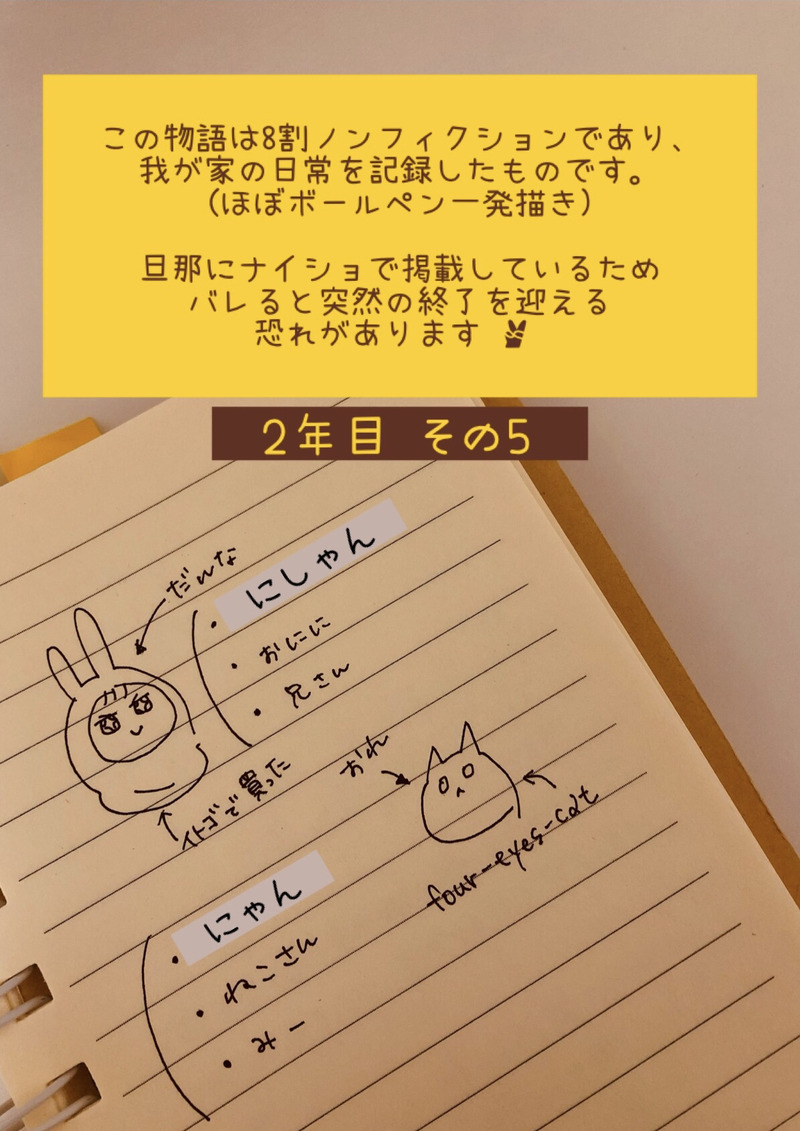 この物語は8割ノンフィクションであり、
我が家の日常を記録したものです。
(ほぼボールペン一発描き)
旦那にナイショで掲載しているため
バレると突然の終了を迎える
恐れがあります ✌
2年目 その5
だんな
・にしゃん
・おにに
・兄さん
イトゴで買った
おれ
four-eyes-cat
・にゃん
・ねこさん
・みー